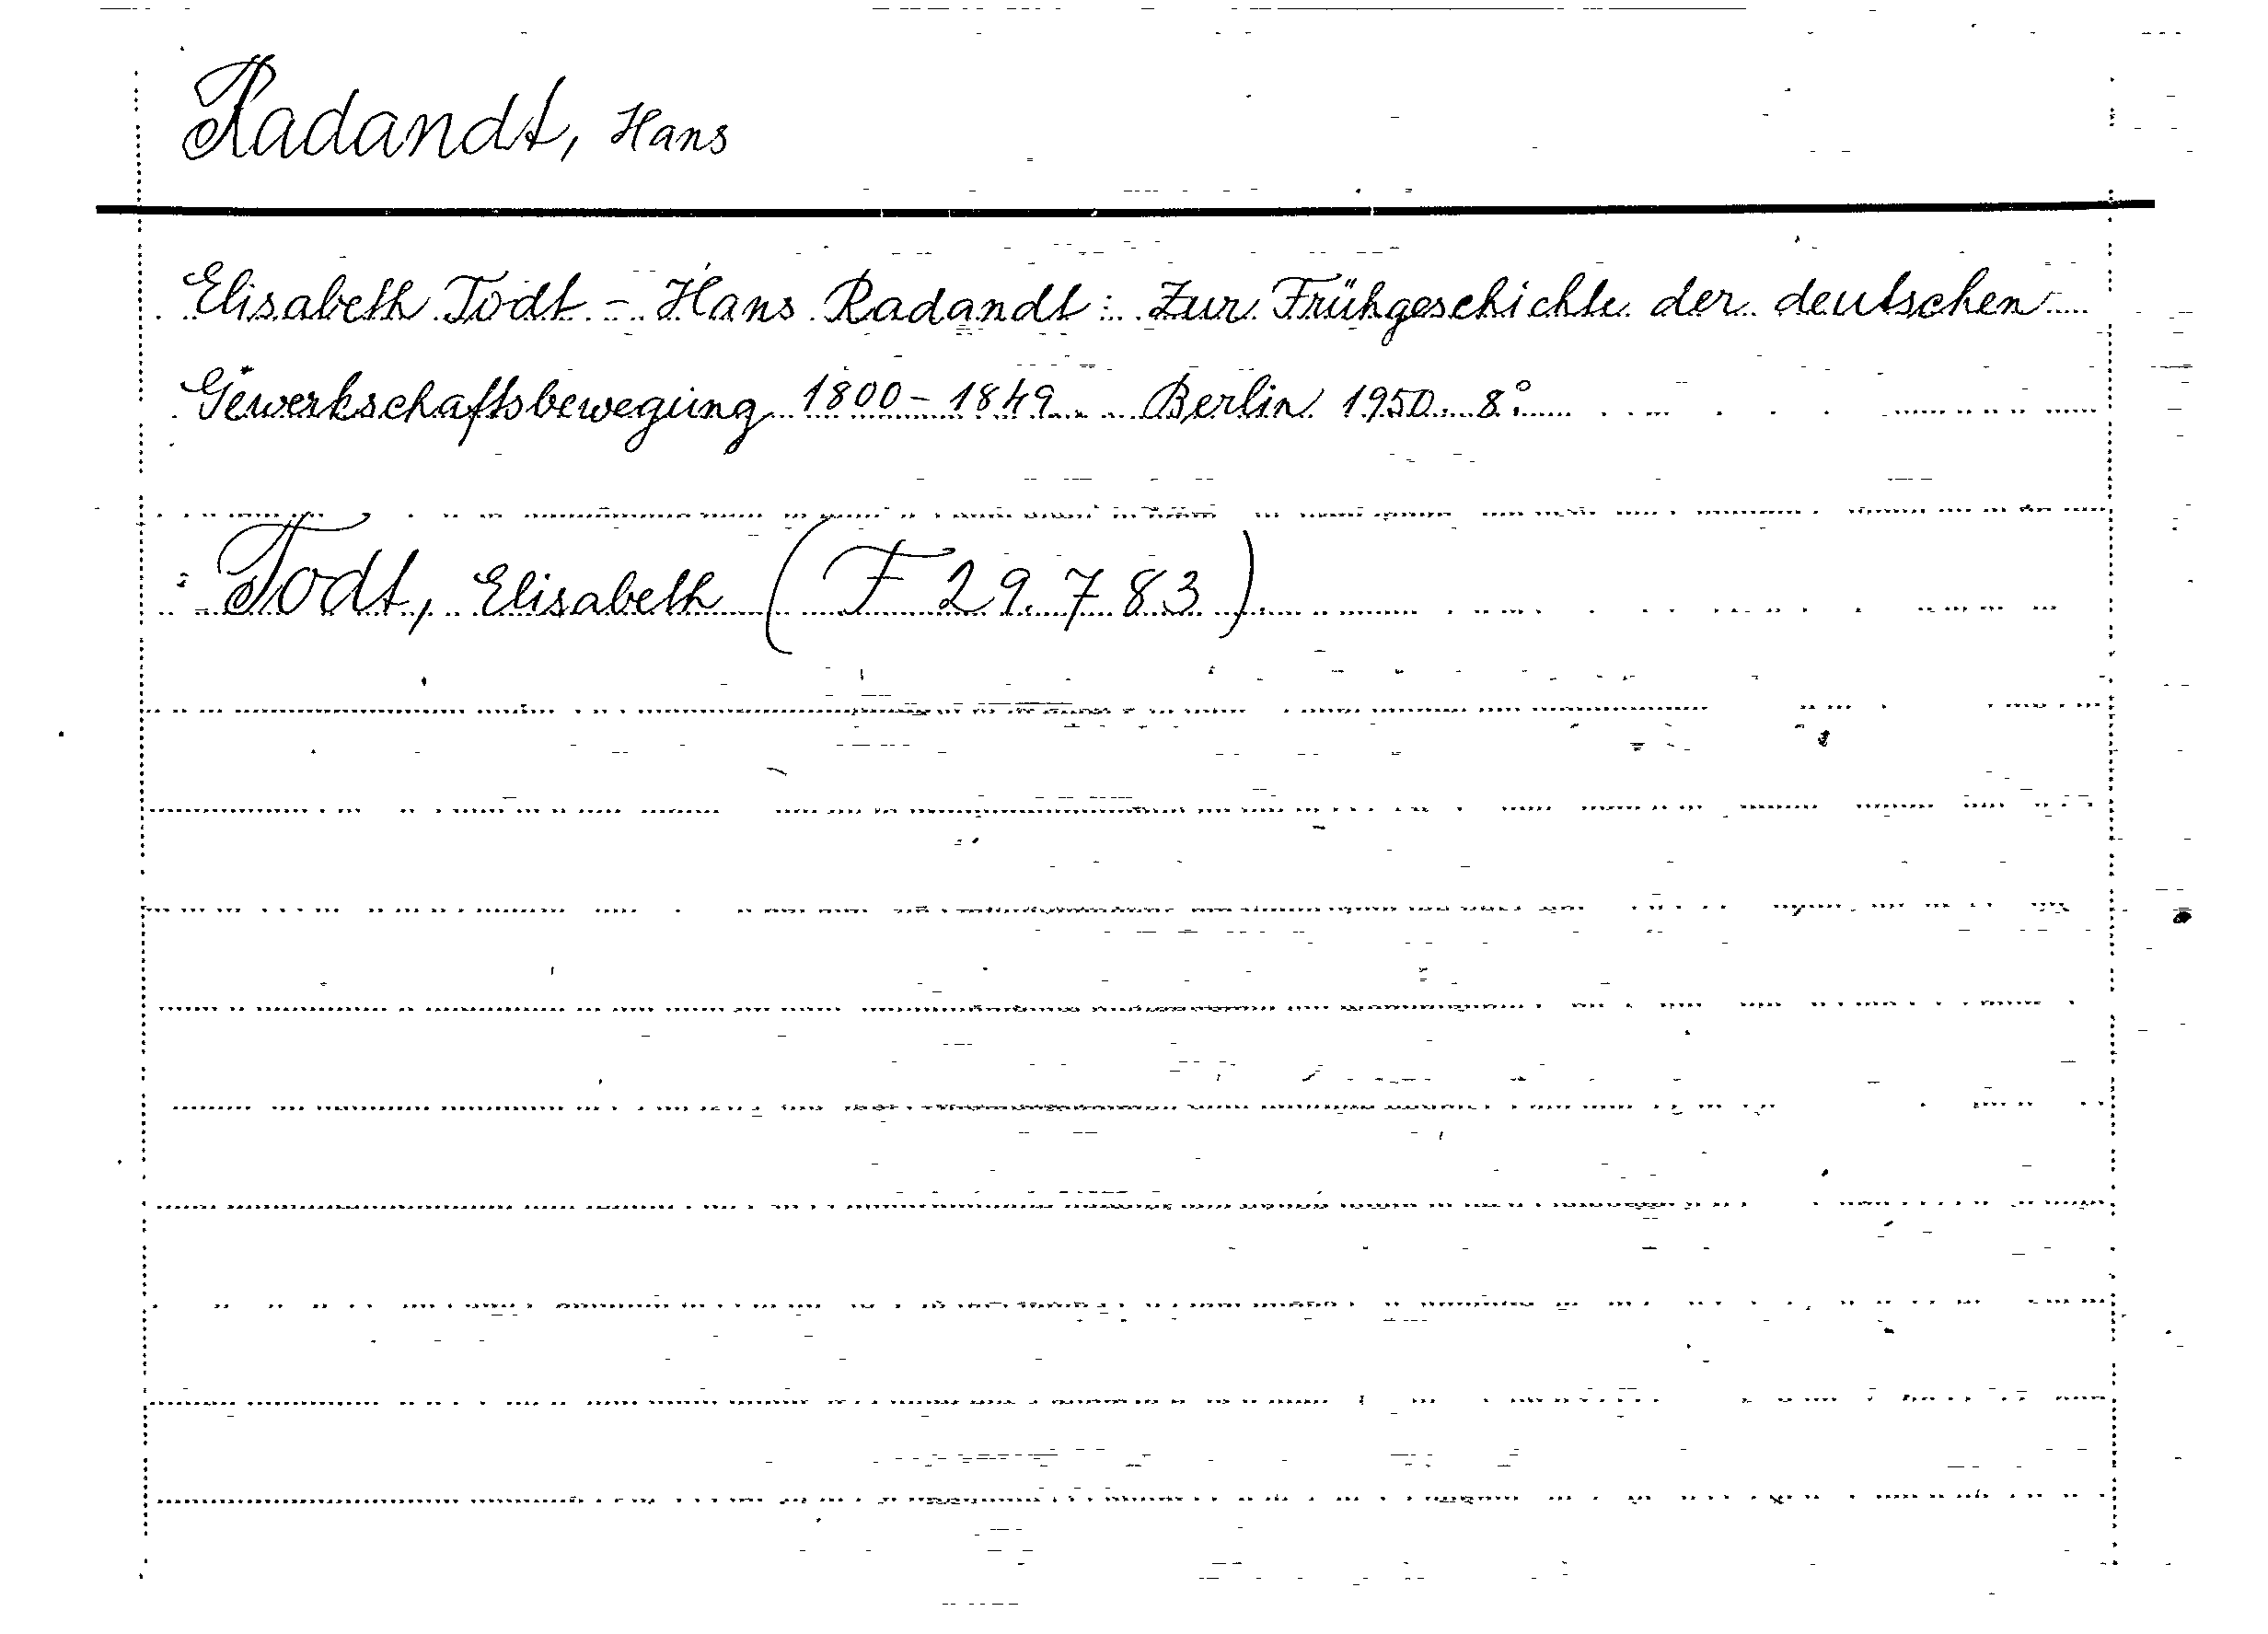 Radandt, Hans
Elisabeth Todt - Hans Radandt: Zur Frühgeschichte der deutschen
Gewerkschaftsbewegung 1800-1849. Berlin 1950. 8°
: Todt, Elisabeth (F 29 783)